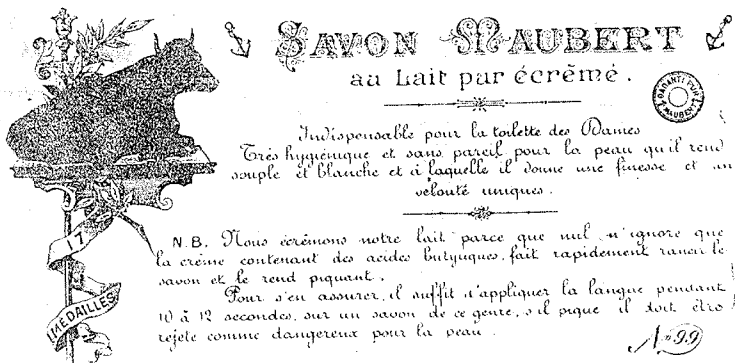 SAVON MAUBERT
au Lait pur écrémé.
GARANTI PUR
MAUBERT
Indispensable pour la toilette des Dames
Très hygiénique et sans pareil pour la peau qu'il rend
souple et blanche et à laquelle il donne une finesse et un
velouté uniques.
17
MEDAILLES
N.B. Nous écrémons notre lait parce que nul n'ignore que
la crème contenant des acides butyriques, fait rapidement rancir le
savon et le rend piquant.
Pour s'en assurer, il suffit d'appliquer la langue pendant
10 à 12 secondes, sur un savon de ce genre, s'il pique il doit être
rejeté comme dangereux pour la peau.
Nº 99